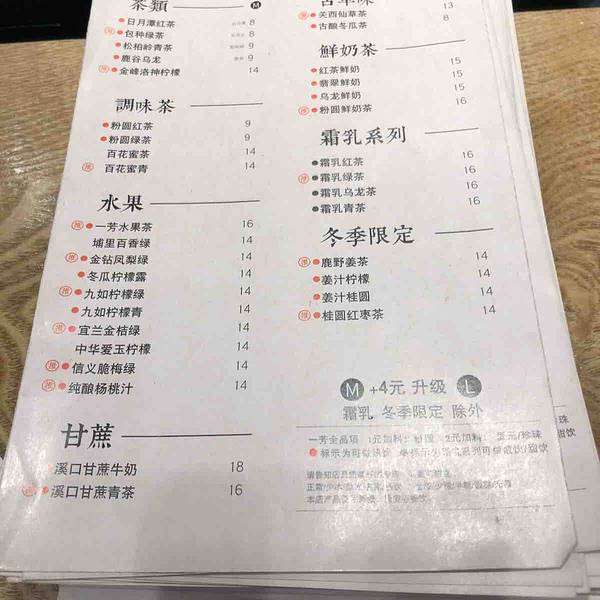 茶類 M
日月潭红茶 8
推 包种绿茶 8
松柏岭青茶 9
鹿谷乌龙 9
推 金峰洛神柠檬 14
調味茶
粉圆红茶 9
粉圆绿茶 9
百花蜜茶 14
推 百花蜜青 14
水果
推 一芳水果茶 16
埔里百香绿 14
推 金钻凤梨绿 14
冬瓜柠檬露 14
推 九如柠檬绿 14
九如柠檬青 14
推 宜兰金桔绿 14
中华爱玉柠檬 14
推 信义脆梅绿 14
推 纯酿杨桃汁 14
甘蔗
溪口甘蔗牛奶 18
推 溪口甘蔗青茶 16
古早味
13
推 关西仙草茶 13
古酿冬瓜茶 8
鮮奶茶
红茶鲜奶 15
翡翠鲜奶 15
乌龙鲜奶 15
推 粉圆鲜奶茶 16
霜乳系列
霜乳红茶 16
推 霜乳绿茶 16
霜乳乌龙茶 16
霜乳青茶 16
冬季限定
推 鹿野姜茶 14
姜汁柠檬 14
姜汁桂圆 14
推 桂圆红枣茶 14
M +4元 升级 L
霜乳 冬季限定 除外
一芳全品项
标示为可做热饮